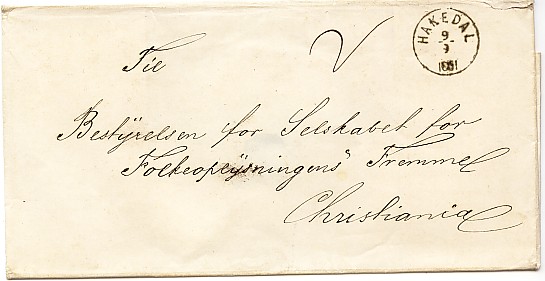 HAKEDAL
9
9
Til
Bestyrelsen for Selskabet for
Folkeoplysningens Fremme
Christiania